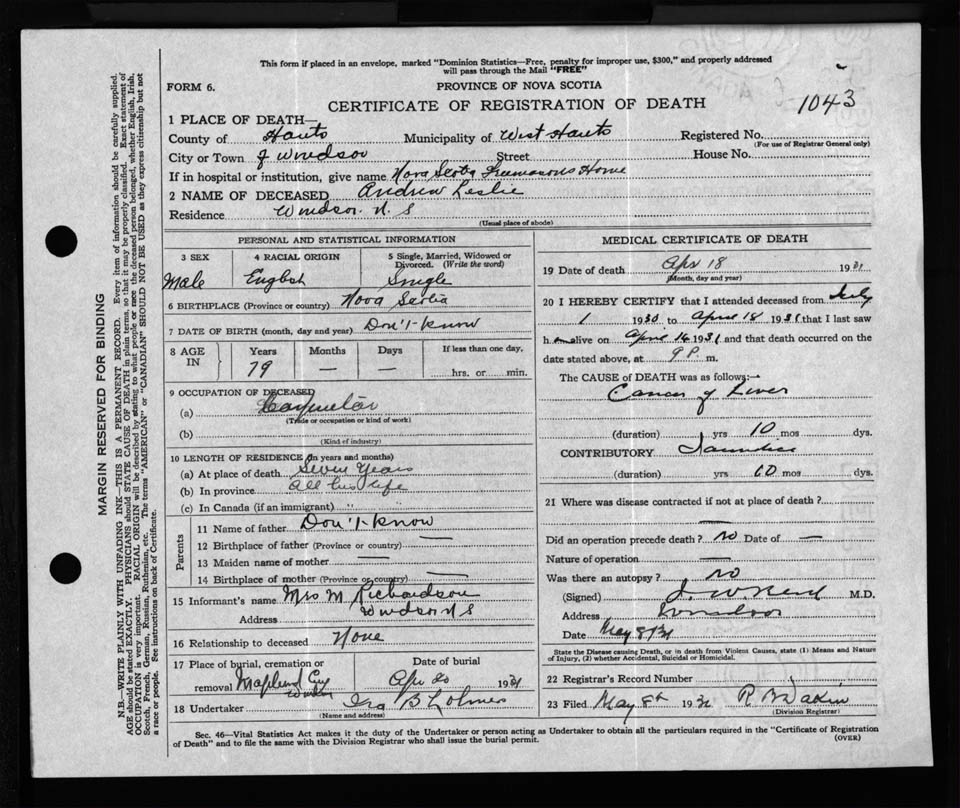 This form if placed in an envelope, marked "Dominion Statistics—Free, penalty for improper use, $300," and properly addressed
will pass through the Mail "FREE"
FORM 6.
PROVINCE OF NOVA SCOTIA
CERTIFICATE OF REGISTRATION OF DEATH
1043
1 PLACE OF DEATH—
County of Hants Municipality of West Hants Registered No.
(For use of Registrar General only)
City or Town of Windsor Street House No.
If in hospital or institution, give name Nova Scotia Freemasons Home
2 NAME OF DECEASED Andrew Leslie
Residence Windsor. N. S
(Usual place of abode)
PERSONAL AND STATISTICAL INFORMATION
3 SEX 4 RACIAL ORIGIN 5 Single, Married, Widowed or
Divorced. (Write the word)
Male English Single
6 BIRTHPLACE (Province or country) Nova Scotia
7 DATE OF BIRTH (month, day and year) Don't know
8 AGE IN Years Months Days If less than one day,
79 — — hrs. or min.
9 OCCUPATION OF DECEASED
(a)
(Trade or occupation or kind of work)
(b)
(Kind of industry)
10 LENGTH OF RESIDENCE (in years and months)
(a) At place of death Seven Years
(b) In province All his life
(c) In Canada (if an immigrant) "
Parents
11 Name of father Don't know
12 Birthplace of father (Province or country) —
13 Maiden name of mother —
14 Birthplace of mother (Province or country) —
15 Informant's name Mrs M Richardson
Address Windsor N S
16 Relationship to deceased None
17 Place of burial, cremation or Date of burial
removal Windsor Apr 20 1931
18 Undertaker Ira B
(Name and address)
MEDICAL CERTIFICATE OF DEATH
19 Date of death Apr 18 1931
(Month, day and year)
20 I HEREBY CERTIFY that I attended deceased from July
1 1930 to April 18 1931 that I last saw
h im alive on April 16 1931 and that death occurred on the
date stated above, at 9 P. m.
The CAUSE of DEATH was as follows:—
Cancer of Liver
(duration) yrs 10 mos dys.
CONTRIBUTORY Jaundice
(duration) yrs 10 mos. dys.
21 Where was disease contracted if not at place of death ?
—
Did an operation precede death ? No Date of —
Nature of operation —
Was there an autopsy ? No
(Signed) J. W. M.D.
Address Windsor
Date May 8/31
State the Disease causing Death, or in death from Violent Causes, state (1) Means and Nature
of Injury, (2) whether Accidental, Suicidal or Homicidal.
22 Registrar's Record Number
23 Filed May 8th 1931
(Division Registrar)
Sec. 46—Vital Statistics Act makes it the duty of the Undertaker or person acting as Undertaker to obtain all the particulars required in the "Certificate of Registration
of Death" and to file the same with the Division Registrar who shall issue the burial permit.
(OVER)
MARGIN RESERVED FOR BINDING
N.B.—WRITE PLAINLY WITH UNFADING INK—THIS IS A PERMANENT RECORD. Every item of information should be carefully supplied.
AGE should be stated EXACTLY. PHYSICIANS should STATE CAUSE OF DEATH in plain terms, so that it may be properly classified. Exact statement of
OCCUPATION is very important. RACIAL ORIGIN will be described by stating to what people or race the deceased person belonged, whether English, Irish,
Scotch, French, German, Russian, Ruthenian, etc. The terms "AMERICAN" or "CANADIAN" SHOULD NOT BE USED as they express citizenship but not
a race or people. See instructions on back of Certificate.